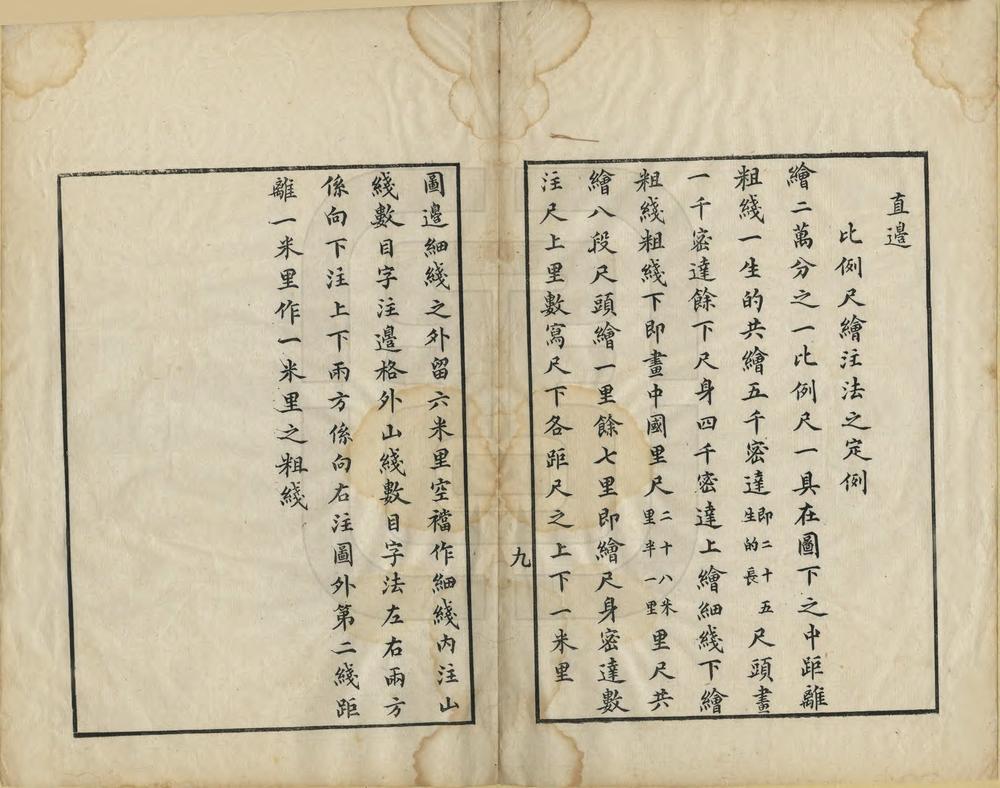 直邉
比例尺繪注法之定例
繪二萬分之一比例尺一具在圖下之中距離
粗綫一生的共繪五千密達即二十五生的長尺頭畫
一千密達餘下尺身四千密達上繪細綫下繪
粗綫粗綫下即畫中國里尺二十八米里半一里里尺共
繪八段尺頭繪一里餘七里即繪尺身密達數
注尺上里數寫尺下各距尺之上下一米里
九
圖邉細綫之外留六米里空襠作細綫内注山
綫數目字注邉格外山綫數目字法左右兩方
係向下注上下兩方係向右注圖外第二綫距
離一米里作一米里之粗綫